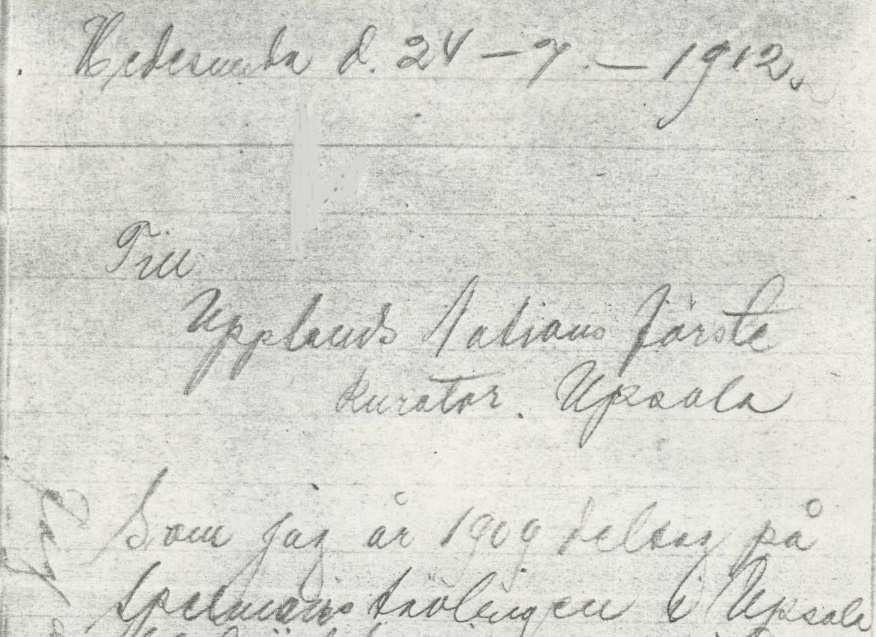 Hedesunda d. 24 – 7. – 1912.
Till
Upplands Nations förste
kurator. Upsala
Som jag år 1909 deltog på
Spelmanstävlingen i Upsala